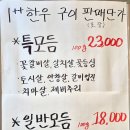 1++한우 구이 판매단가
*특모듬 100g 23,000
꽃갈비살, 살치살, 꽃등심
토시살, 안창살, 갈비덧살
치마살, 제비추리
*일반모듬 100g 18,000